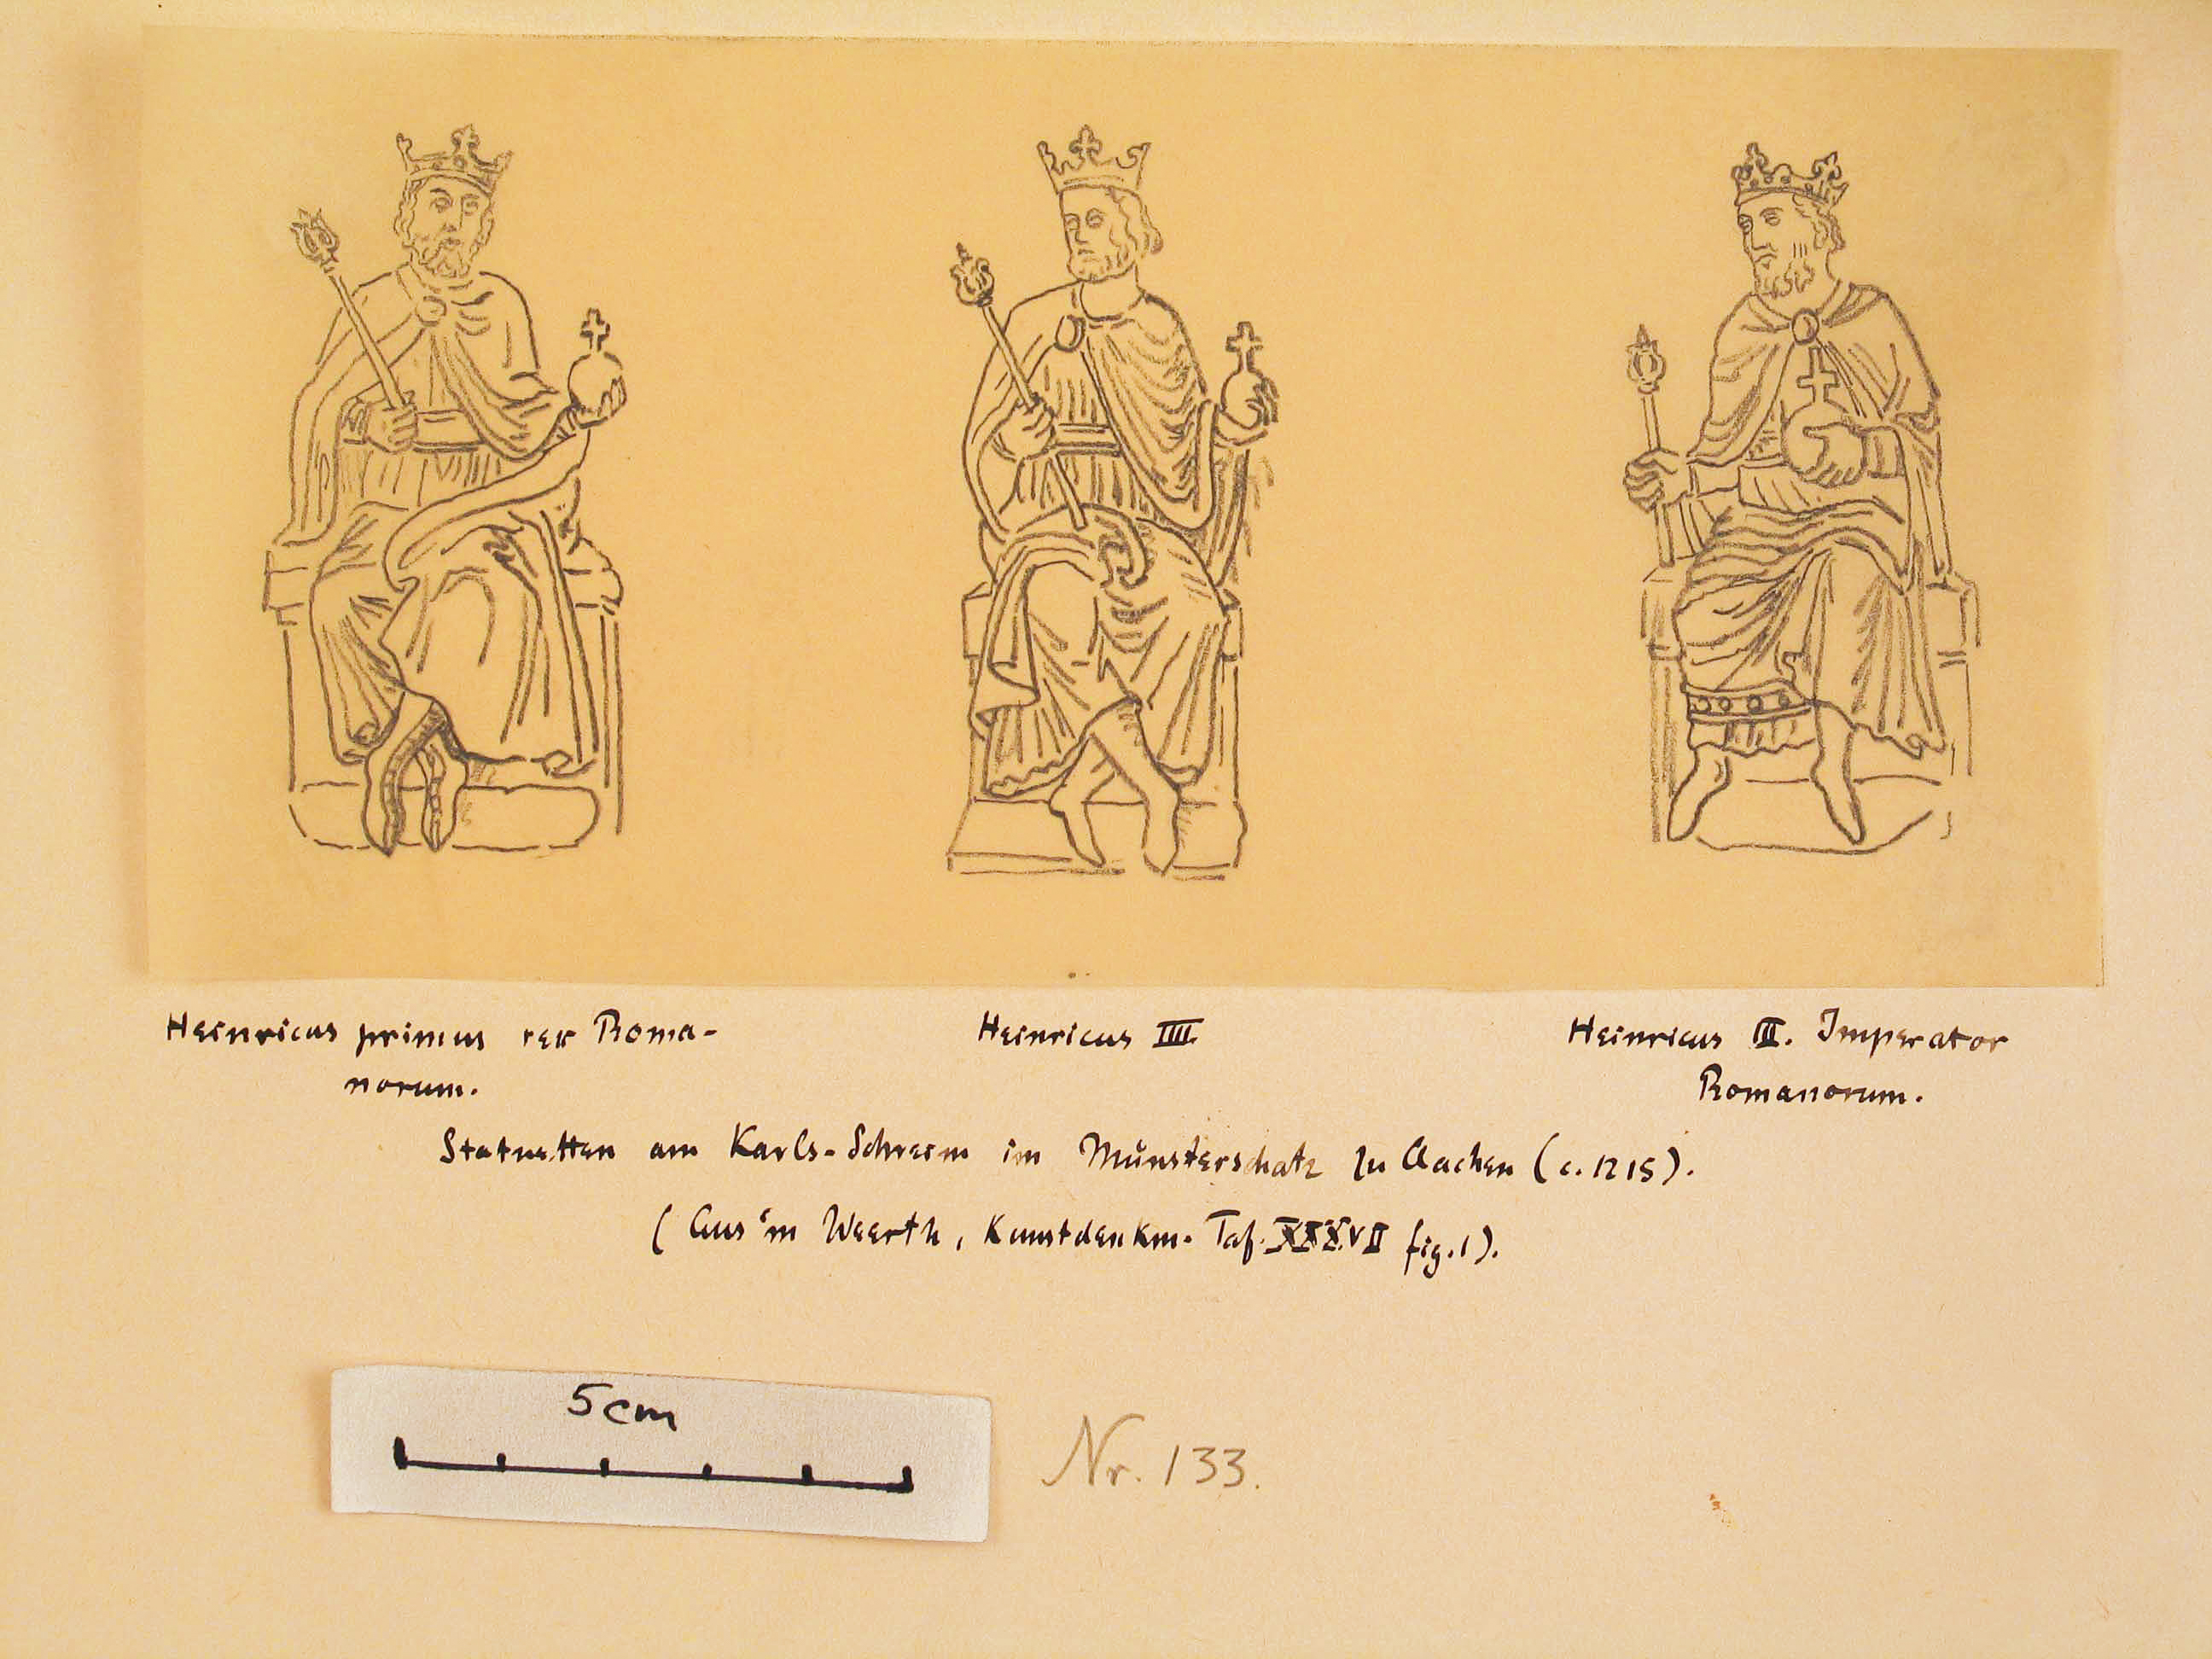 Heinricus primus rex Roma-
norum.
Heinricus IIII.
Heinricus III. Imperator
Romanorum.
Statuetten am Karls-Schrein im Münsterschatz zu Aachen (c. 1215).
(Aus'm Weerth, Kunstdenkm. Taf. XXXVII fig. 1).
5cm
Nr. 133.